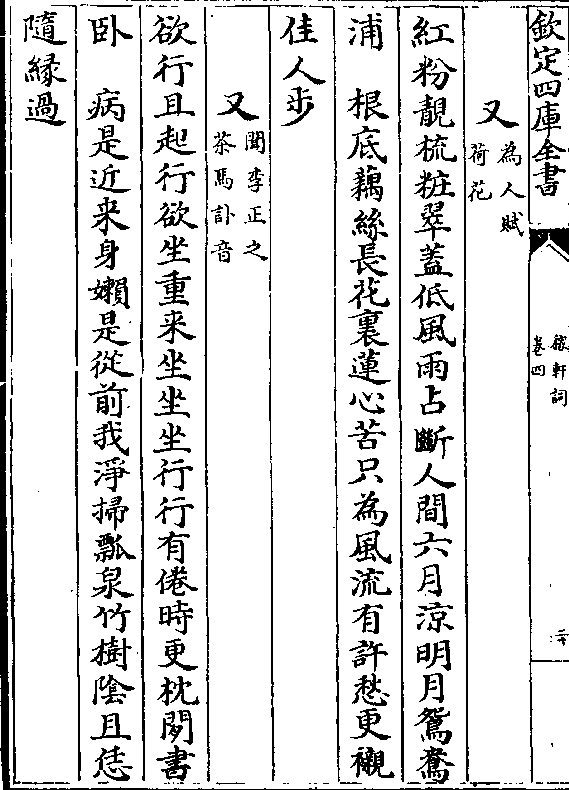 欽定四庫全書
稼軒詞
卷四
又
為人賦
荷花
紅粉靚梳粧翠蓋低風雨占斷人間六月涼明月鴛鴦
浦　根底藕絲長花裏蓮心苦只為風流有許愁更襯
佳人步
又
聞李正之
茶馬訃音
欲行且起行欲坐重来坐坐坐行行有倦時更枕閒書
卧　病是近来身嬾是從前我淨掃瓢泉竹樹陰且恁
隨緣過